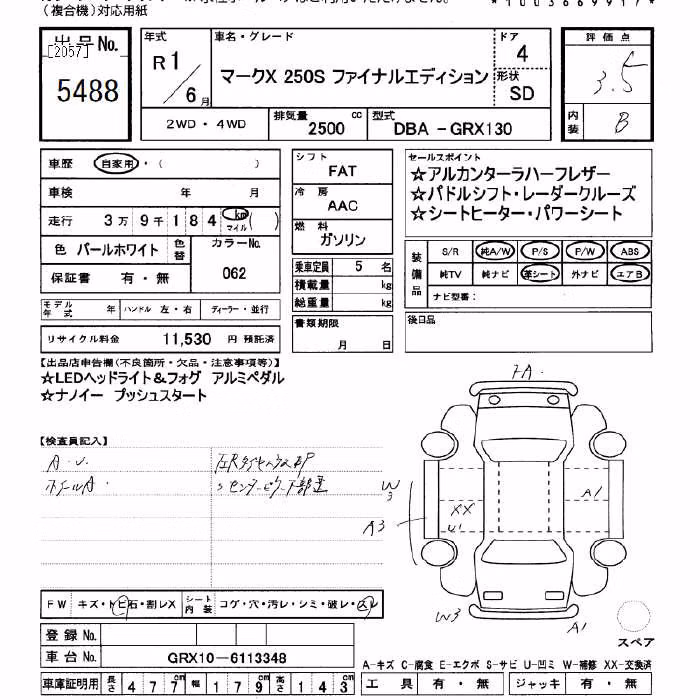 (複合機)対応用紙
*1003669917*
出品No.
[2057]
5488
年式
R1/6月
車名・グレード
マークX 250S ファイナルエディション
ドア
4
形状
SD
評価点
3.5
内装
B
2WD・4WD
排気量
2500 cc
型式
DBA -GRX130
車歴 自家用・( )
車検 年 月
走行 3万 9千 1 8 4 km マイル ( )
色 パールホワイト 色替
カラーNo.
062
保証書 有・無
モデル年式 年 ハンドル 左・右 ディーラー・並行
リサイクル料金 11,530 円 預託済
シフト
FAT
冷房
AAC
燃料
ガソリン
乗車定員 5 名
積載量 kg
総重量 kg
書類期限
月 日
セールスポイント
☆アルカンターラハーフレザー
☆パドルシフト・レーダークルーズ
☆シートヒーター・パワーシート
装備品
S/R 純A/W P/S P/W ABS
純TV 純ナビ 革シート 外ナビ エアB
ナビ型番:
後日品
【出品店申告欄(不良箇所・欠品・注意事項等)】
☆LEDヘッドライト&フォグ アルミペダル
☆ナノイー プッシュスタート
【検査員記入】
A.U.
ホイールA
FA
W3
A3
XX
U1
A1
W3
A1
スペア
FW キズ・トビ石・割レX
シート内装 コゲ・穴・汚レ・シミ・破レ・スレ
登録No.
車台No. GRX10-6113348
A-キズ C-腐食 E-エクボ S-サビ U-凹ミ W-補修 XX-交換済
車庫証明用 長さ 477cm 幅 179cm 高さ 143cm
工具 有・無 ジャッキ 有・無